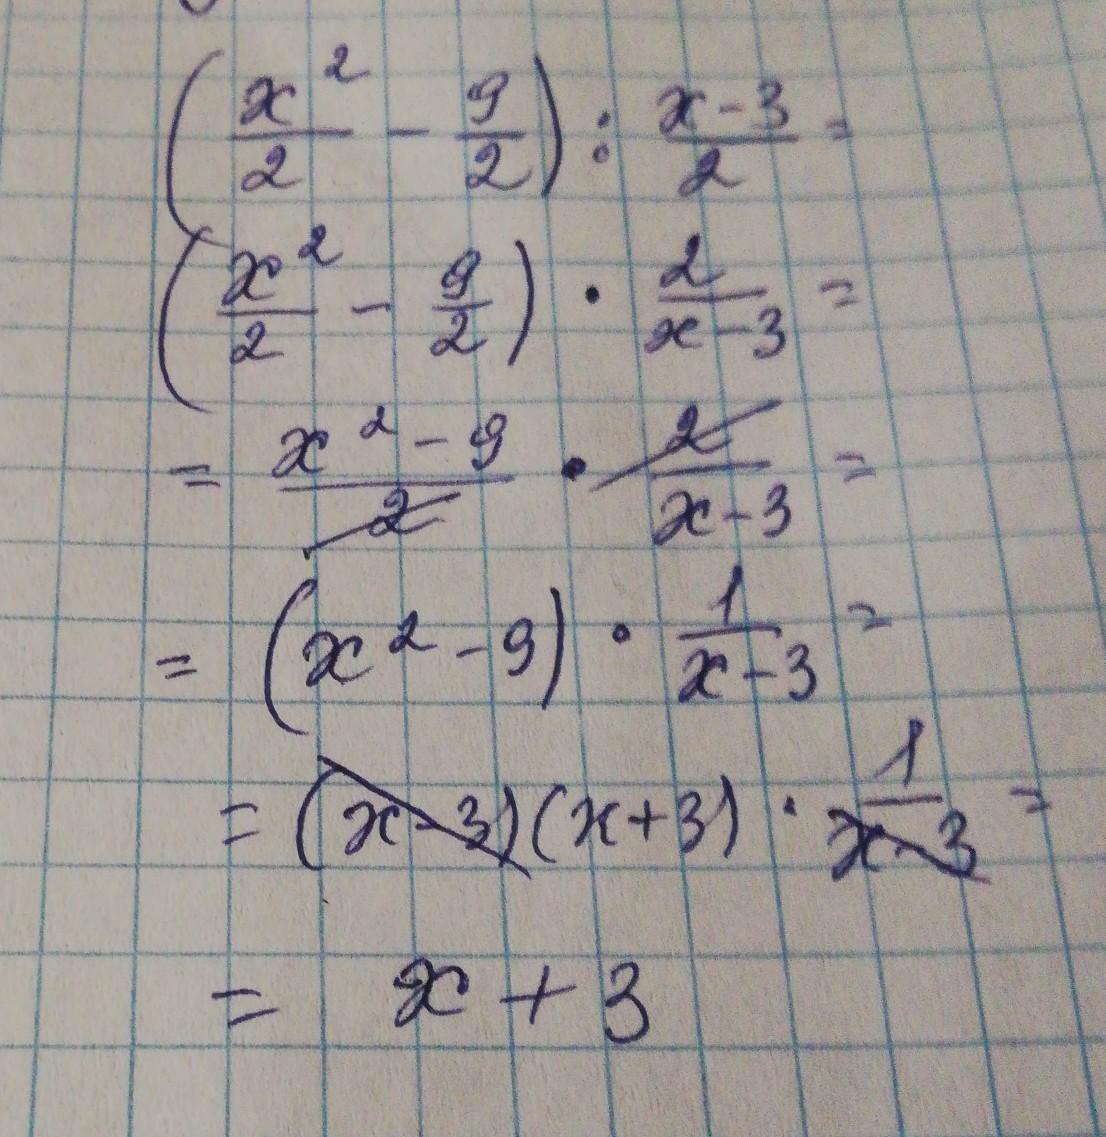 (x²/2 - 9/2) : x-3/2 =
(x²/2 - 9/2) · 2/x-3 =
= x²-9/2 · 2/x-3 =
= (x²-9) · 1/x-3 =
= (x-3)(x+3) · 1/x-3 =
= x+3